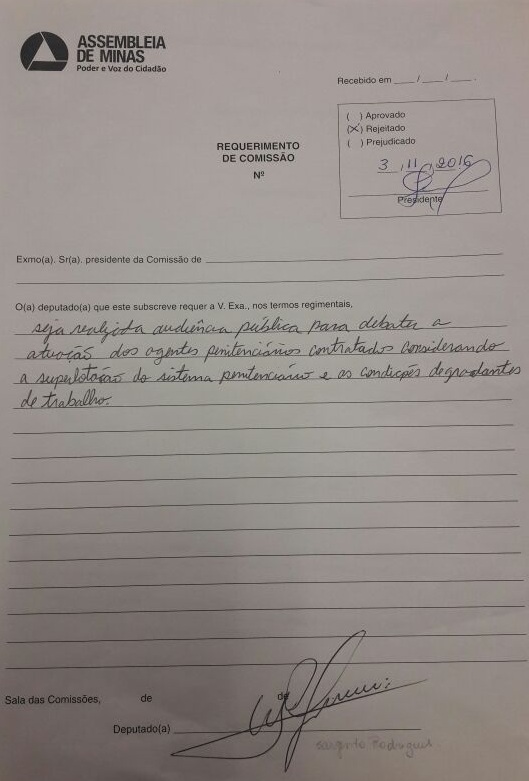 ASSEMBLEIA
DE MINAS
Poder e Voz do Cidadão
Recebido em ___/___/___.
( ) Aprovado
(X) Rejeitado
( ) Prejudicado
3 / 11 / 2016
Presidente
REQUERIMENTO
DE COMISSÃO
Nº
Exmo(a). Sr(a). presidente da Comissão de
O(a) deputado(a) que este subscreve requer a V. Exa., nos termos regimentais,
seja realizada audiência pública para debater a
atuação dos agentes penitenciários contratados considerando
a superlotação do sistema penitenciário e as condições degradantes
de trabalho.
Sala das Comissões, de de
Deputado(a)
Sargento Rodrigues